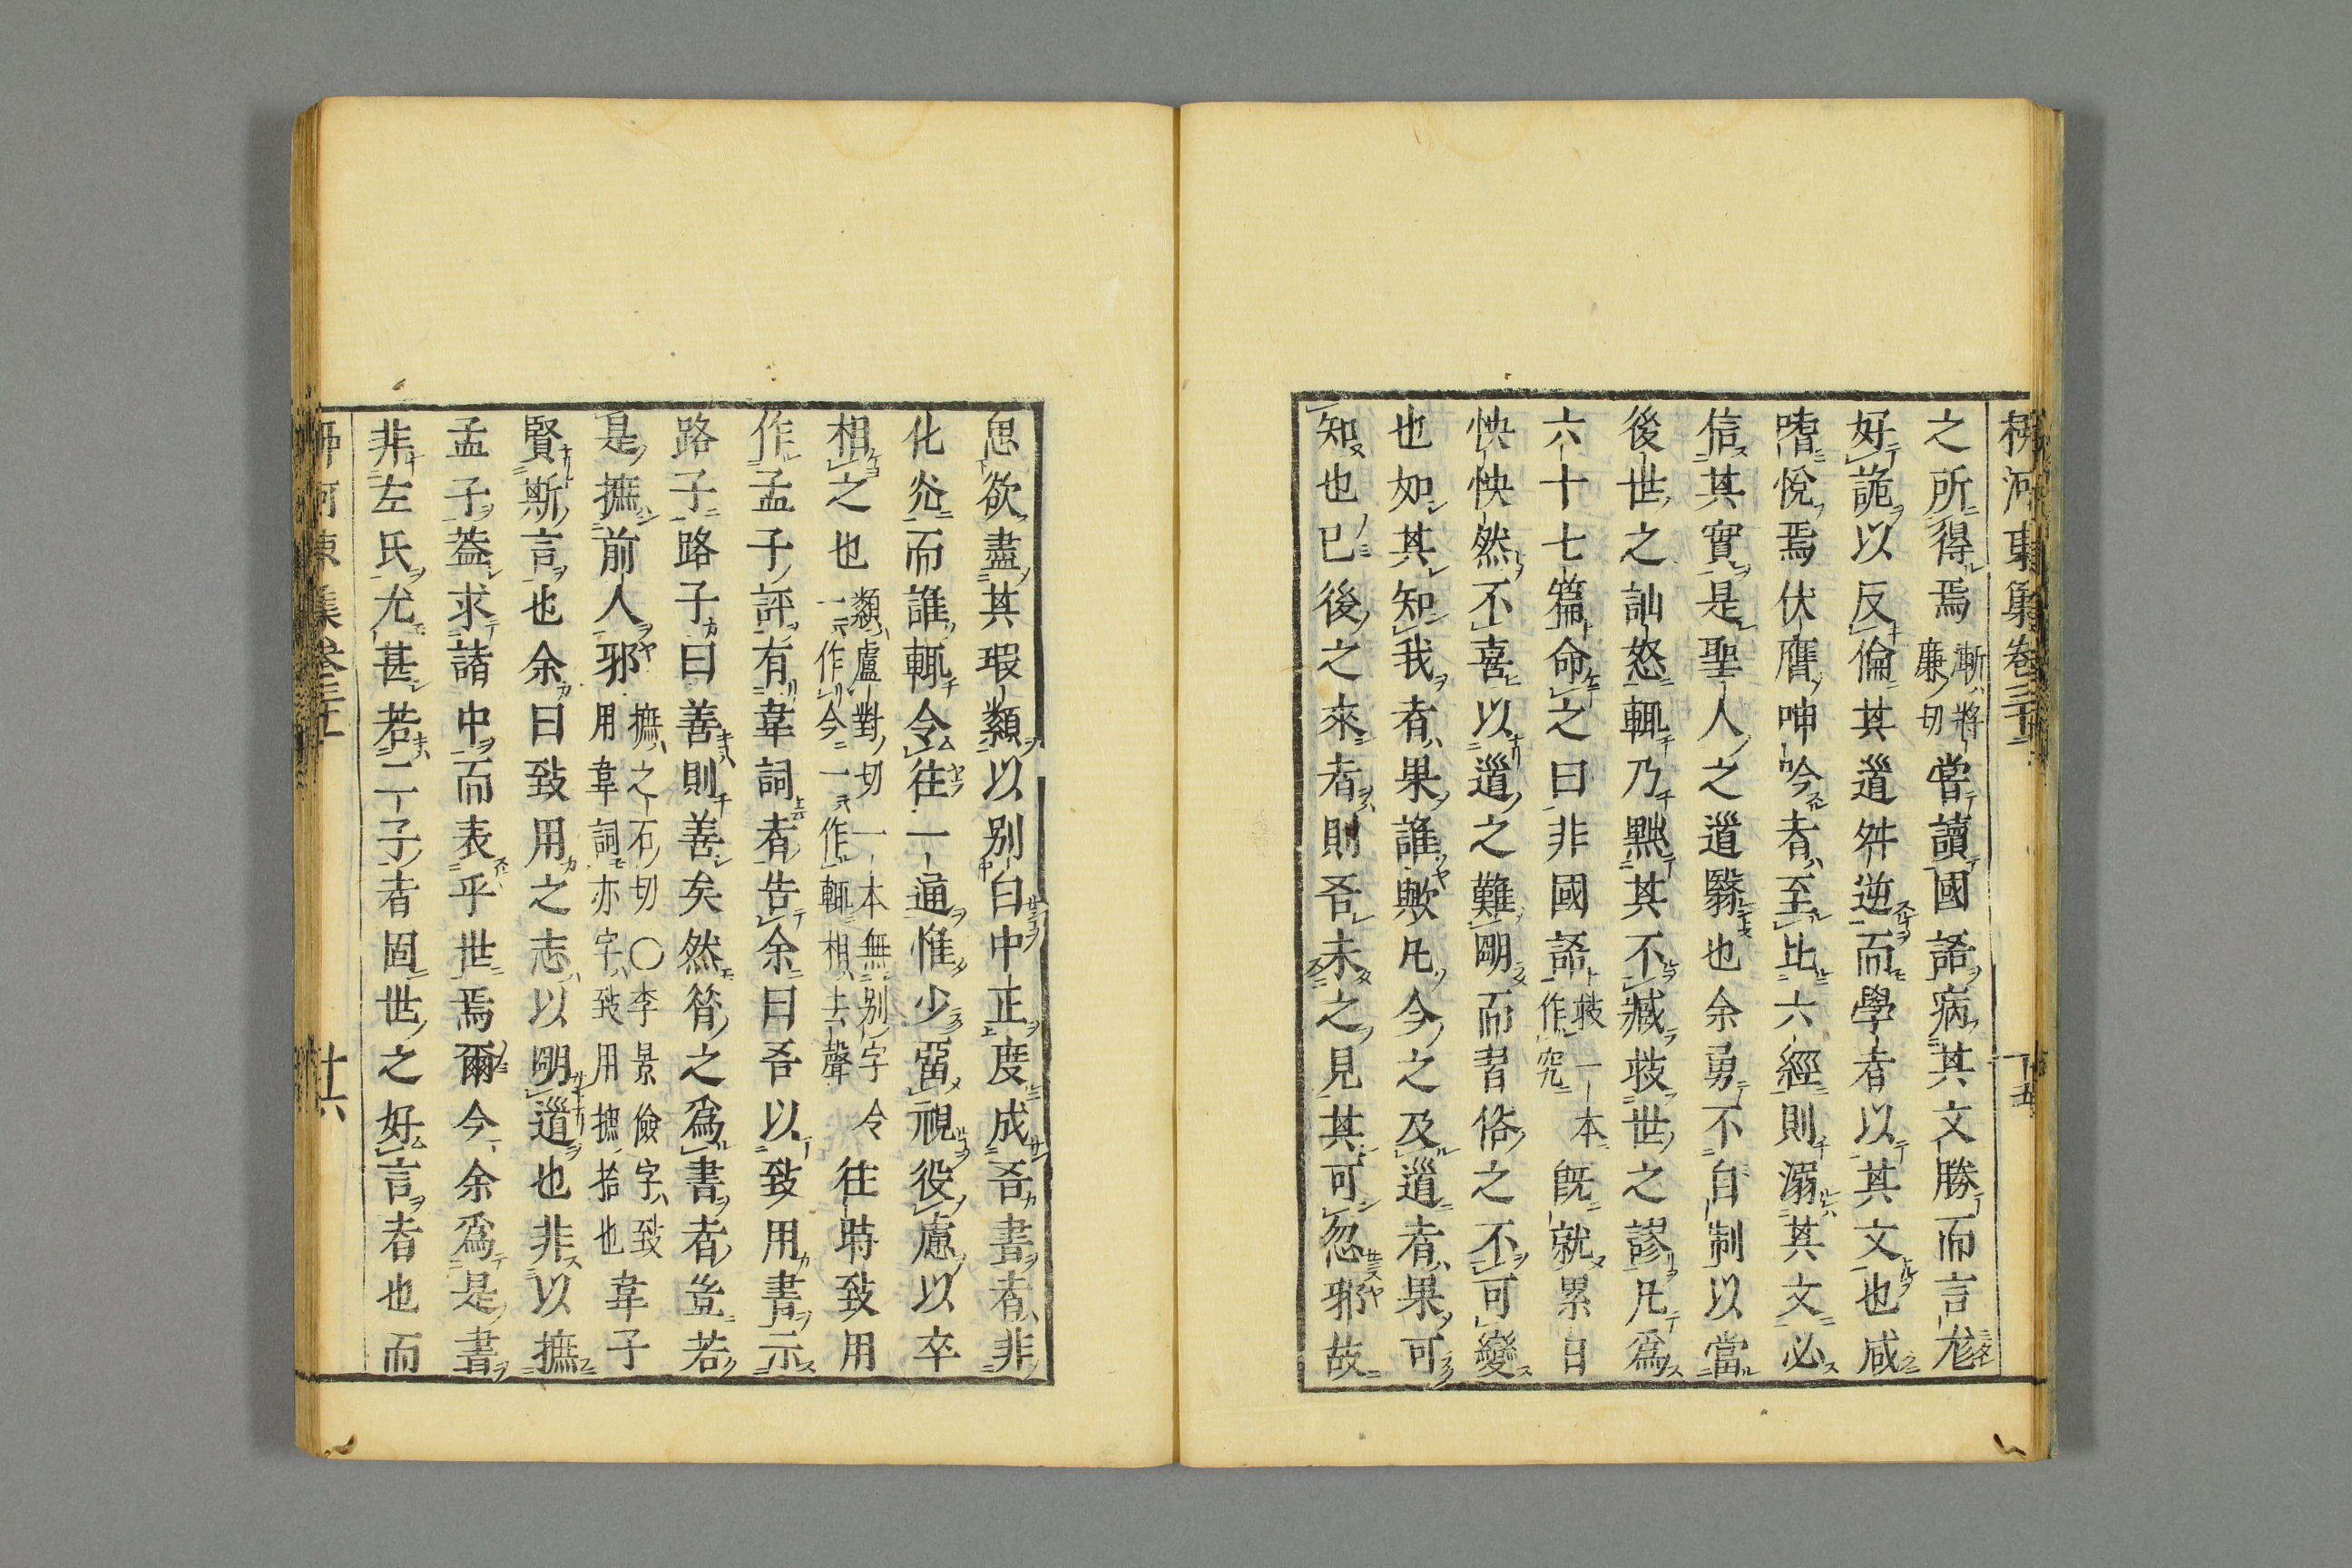 柳河東集卷三十一
十五
之所得焉漸將廉切嘗讀國語病其文勝而言尨
好詭以反倫其道舛逆而學者以其文也咸
嗜悅焉伏膺呻吟者至比六經則溺其文必
信其實是聖人之道翳也余勇不自制以當
後世之訕怒輒乃黜其不臧救世之謬凡爲
六十七篇命之曰非國語救一本作究既就累日
怏怏然不喜以道之難明而習俗之不可變
也如其知我者果誰歟凡今之及道者果可
知也已後之來者則吾未之見其可忽邪故
思欲盡其瑕纇以別白中正度成吾書者非
化光而誰輒令往一通惟少留視役慮以卒
相之也纇盧對切一本無別字令一作今一作輒相去聲往時致用
作孟子評有韋詞者告余曰吾以致用書示
路子路子曰善則善矣然昝之爲書者豈若
是摭前人邪摭之石切○李景儉字致用韋詞亦字致用摭拾也韋子
賢斯言也余曰致用之志以明道也非以摭
孟子蓋求諸中而表乎世焉爾今余爲是書
非左氏尤甚若二子者固世之好言者也而
柳河東集卷三十一
十六